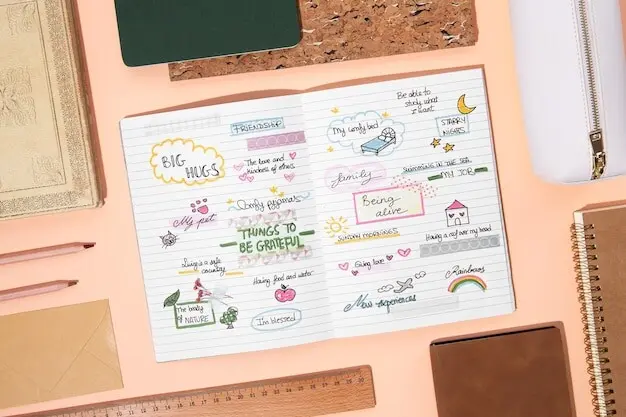 FRIENDSHIP
BIG
HUGS
The love and
kindness of others
My pet
Comfy pajamas
THINGS TO
BE GRATEFUL
Living in a safe
country
Having food and water
The beauty
of NATURE
I'm blessed
Be able to
study what
I want
My comfy bed
STARRY
NIGHTS
family
SWIMMING IN THE SEA
MY JOB
Being
alive
SUNDAY MORNINGS
Having a roof over my head
Giving love
Rainbows
New experiences